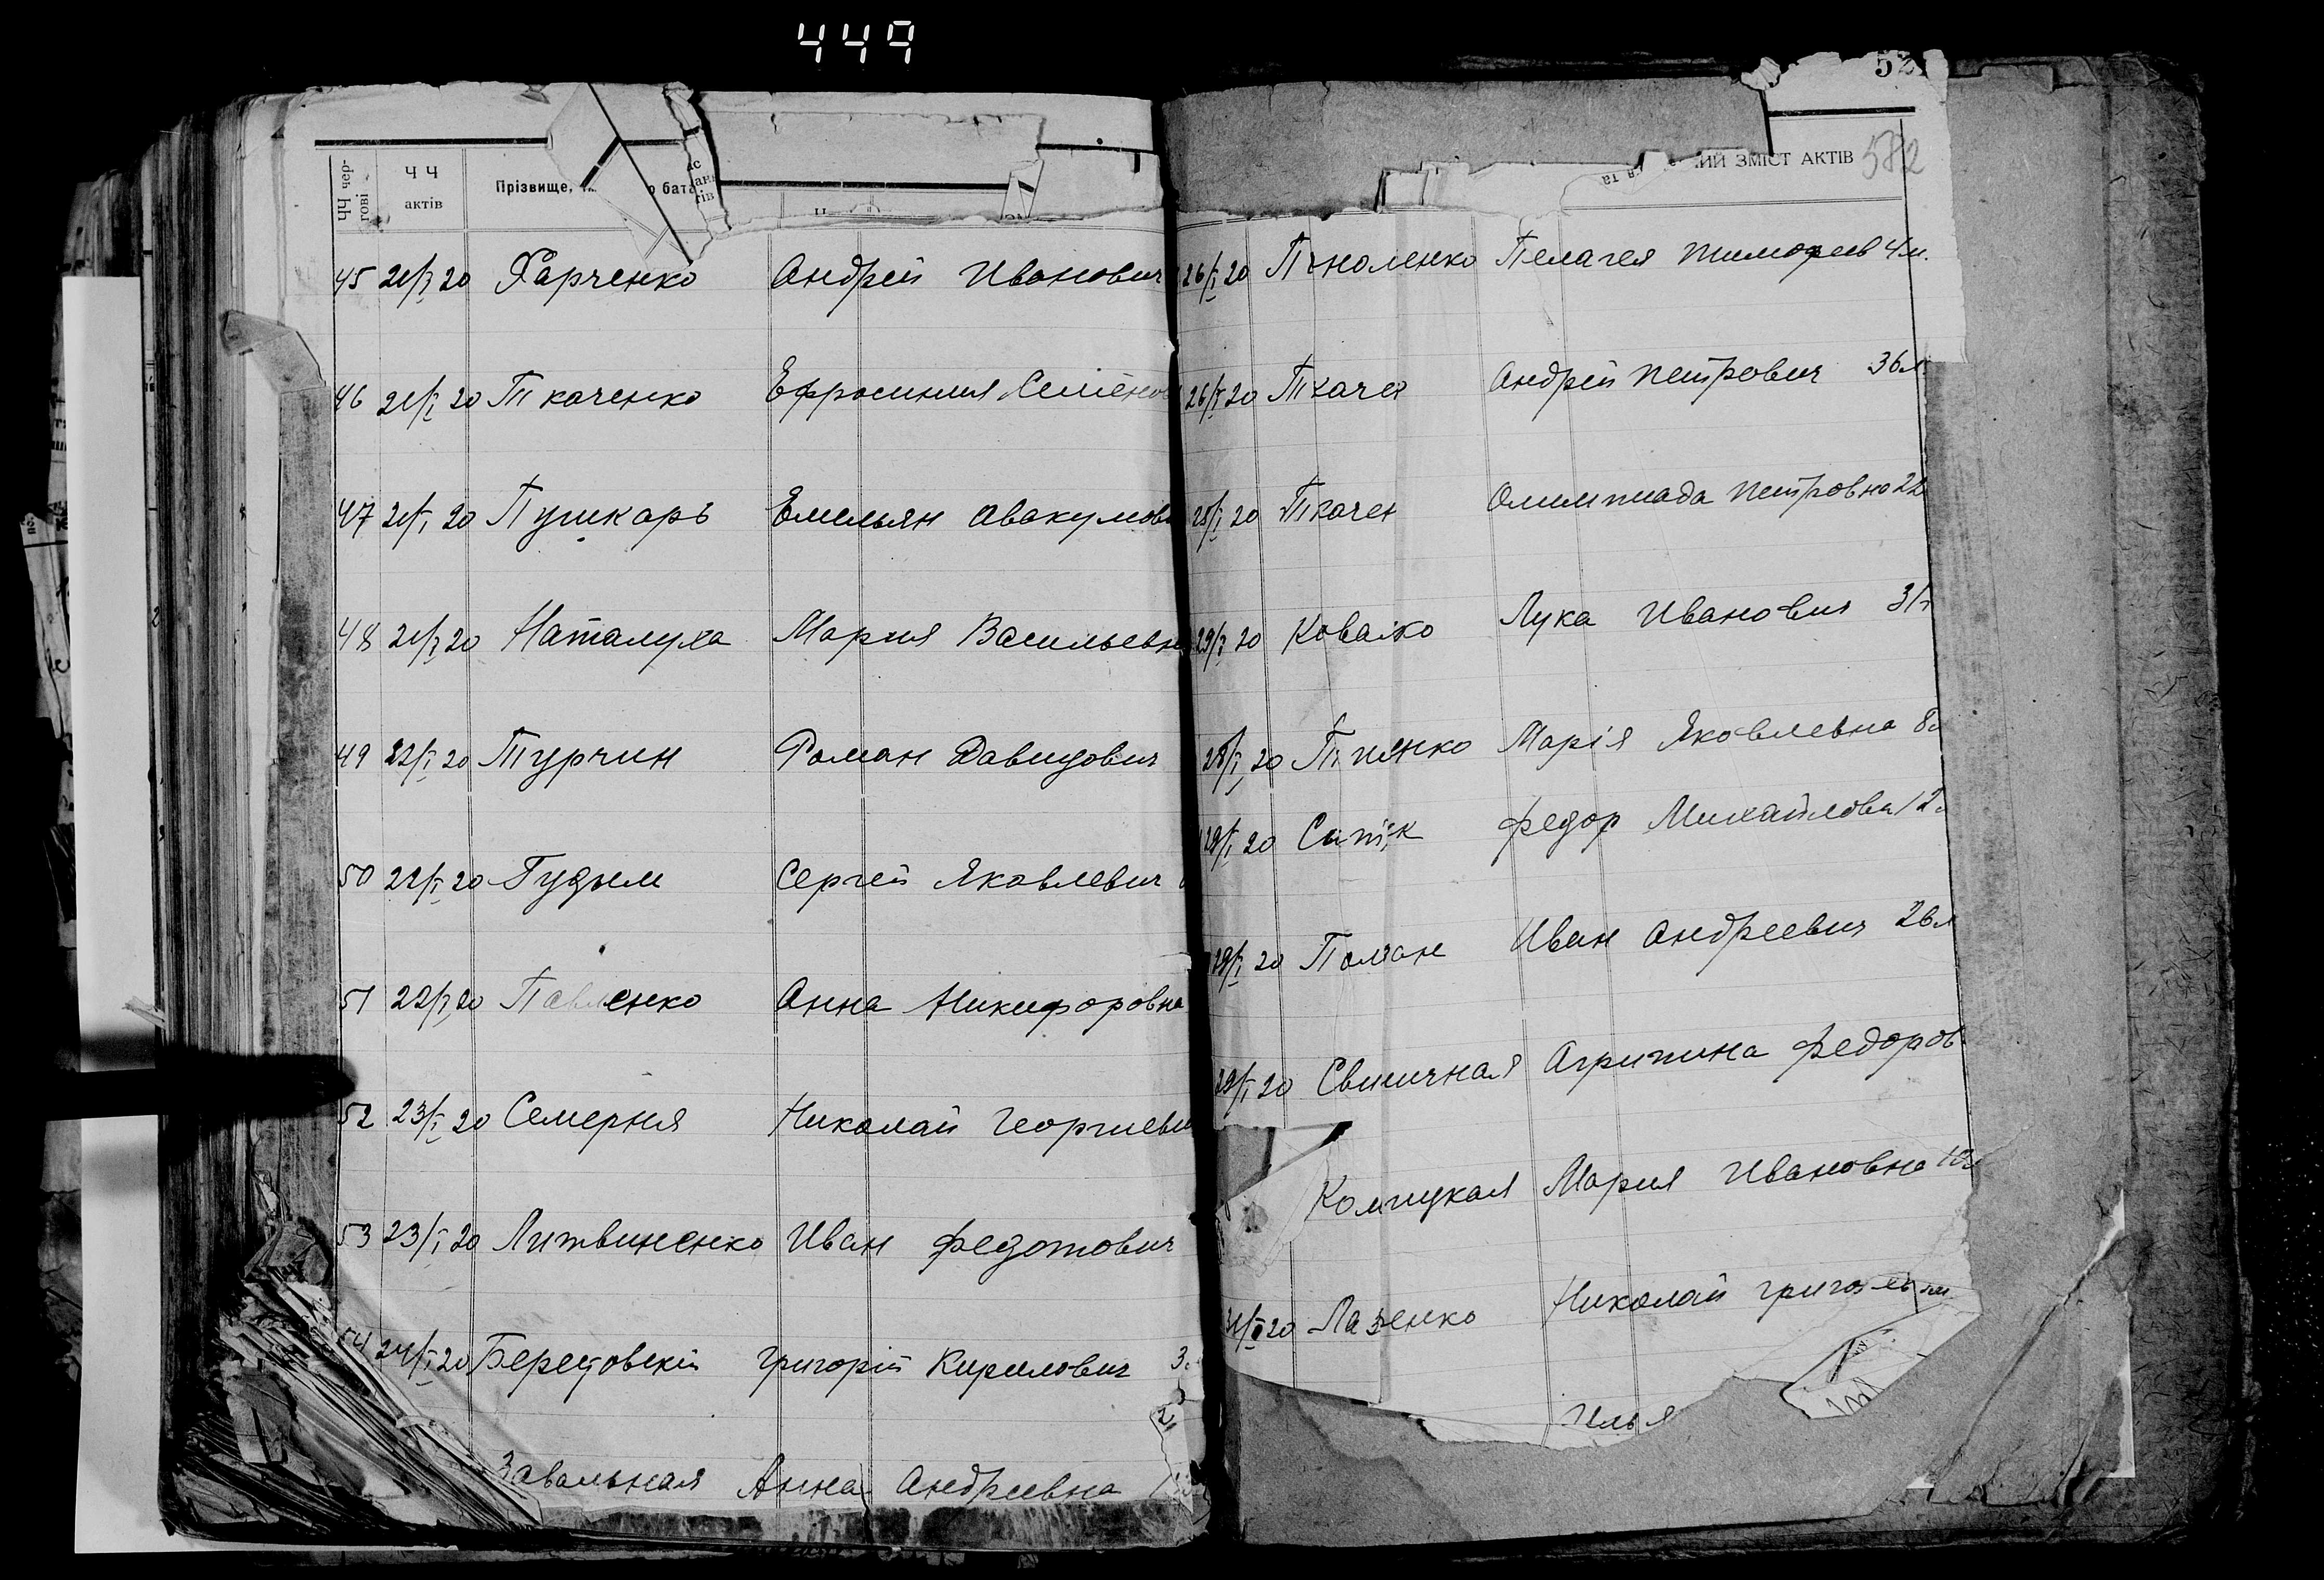 449
52
582
ЧЧ чер-
гові
Ч Ч
актів
Прізвище,
ИЙ ЗМІСТ АКТІВ
45 21/I 20 Харченко Андрей Иванович
46 21/I 20 Ткаченко Ефросиния Семёнов
47 21/I 20 Пушкарь Емельян Авакумови
48 21/I 20 Наталуха Мария Васильевн
49 22/I 20 Турчин Роман Давидович
50 22/I 20 Гудым Сергей Яковлевич
51 22/I 20 Павленко Анна Никифоровна
52 23/I 20 Семерня Николай Георгиеви
53 23/I 20 Литвиненко Иван Федотович
54 24/I 20 Берестовскій Григорій Кирилович 3
Завальная Анна Андреевна
26/I 20 Пелагея Тимофеев 4 м.
26/I 20 Ткач Андрей Петрович 36 л
28/I 20 Ткачен Олимпиада Петровна 22
29/I 20 Ковалко Лука Иванович 31
28/I 20 Марія Яковлевна 8
29/I 20 Федор Михайлови 12
29/I 20 Иван Андреевич 26 л
29/I 20 Свиничная Агрипина Федоров
Мария Ивановна
31/I 20 Лазенко Николай
Илья